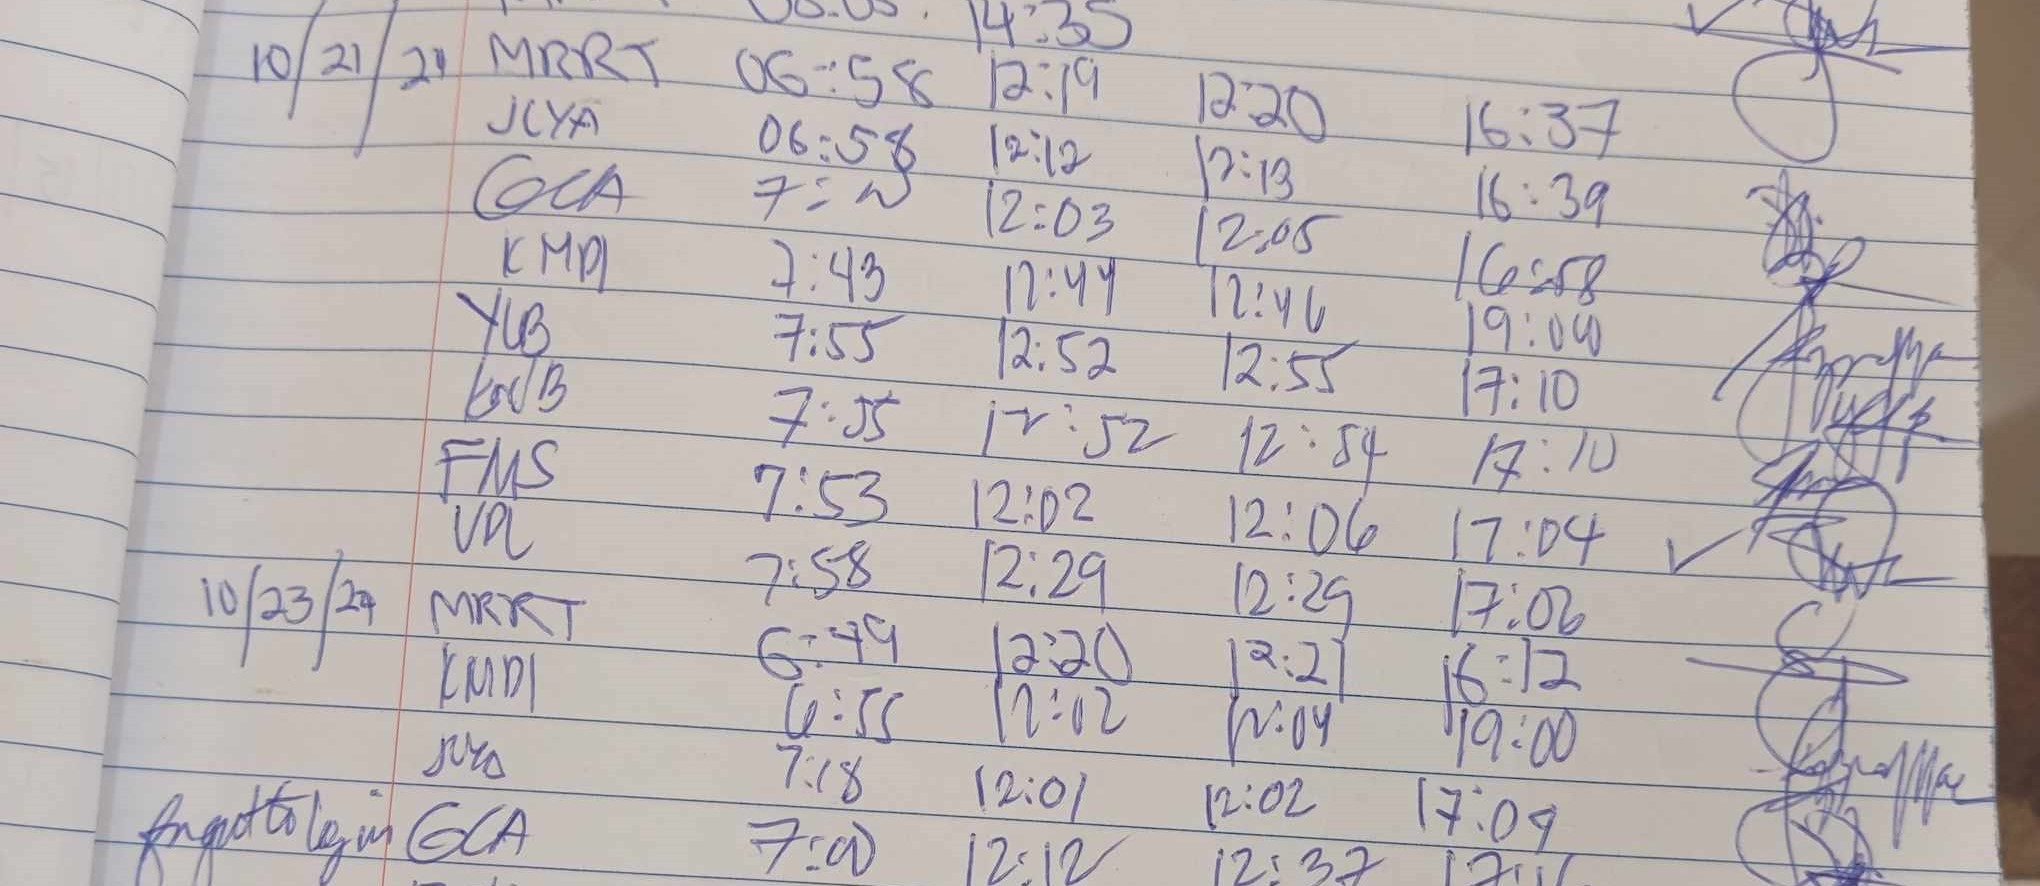 14:35
10/21/24 MRRT 06:58 12:19 12:20 16:37
JCYA 06:58 12:12 12:13 16:39
GCA 7: 12:03 12:05 16:58
KMDI 7:43 12:44 12:46 19:00
YLB 7:55 12:52 12:55 17:10
7:55 12:52 12:54 17:10
FMS 7:53 12:02 12:06 17:04
7:58 12:29 12:29 17:06
10/23/24 MRRT 6:49 12:20 12:21 16:12
KMDI 6:55 12:02 12:04 19:00
7:18 12:01 12:02 17:09
forgot to log in GCA 7:00 12:12 12:37